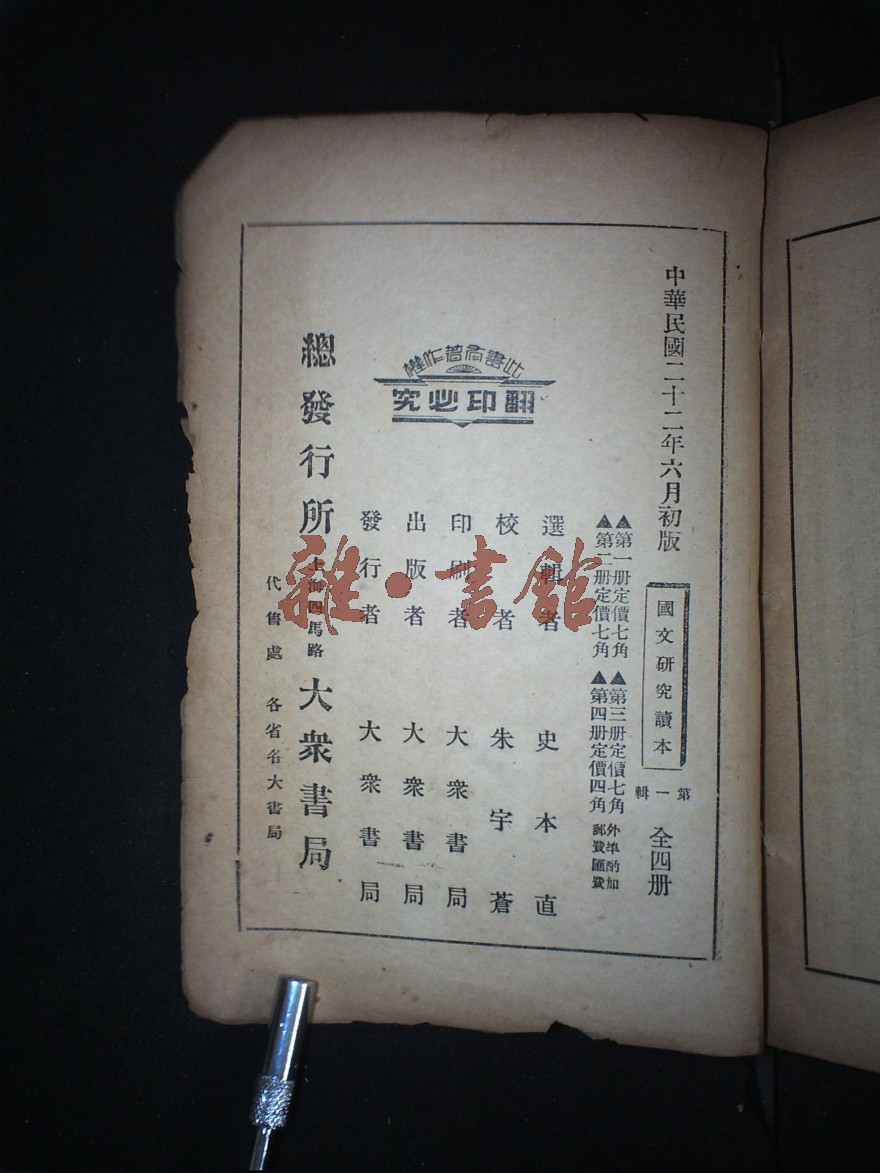 中華民國二十二年六月初版
國文研究讀本
第一輯
全四册
▲第一册定價七角
▲第二册定價七角
▲第三册定價七角
▲第四册定價四角
外埠酌加
郵費匯費
選輯者 史本直
校者 朱宇蒼
印刷者 大衆書局
出版者 大衆書局
發行者 大衆書局
此書有著作權
翻印必究
總發行所 上海四馬路 大衆書局
代售處 各省各大書局
雜·書館